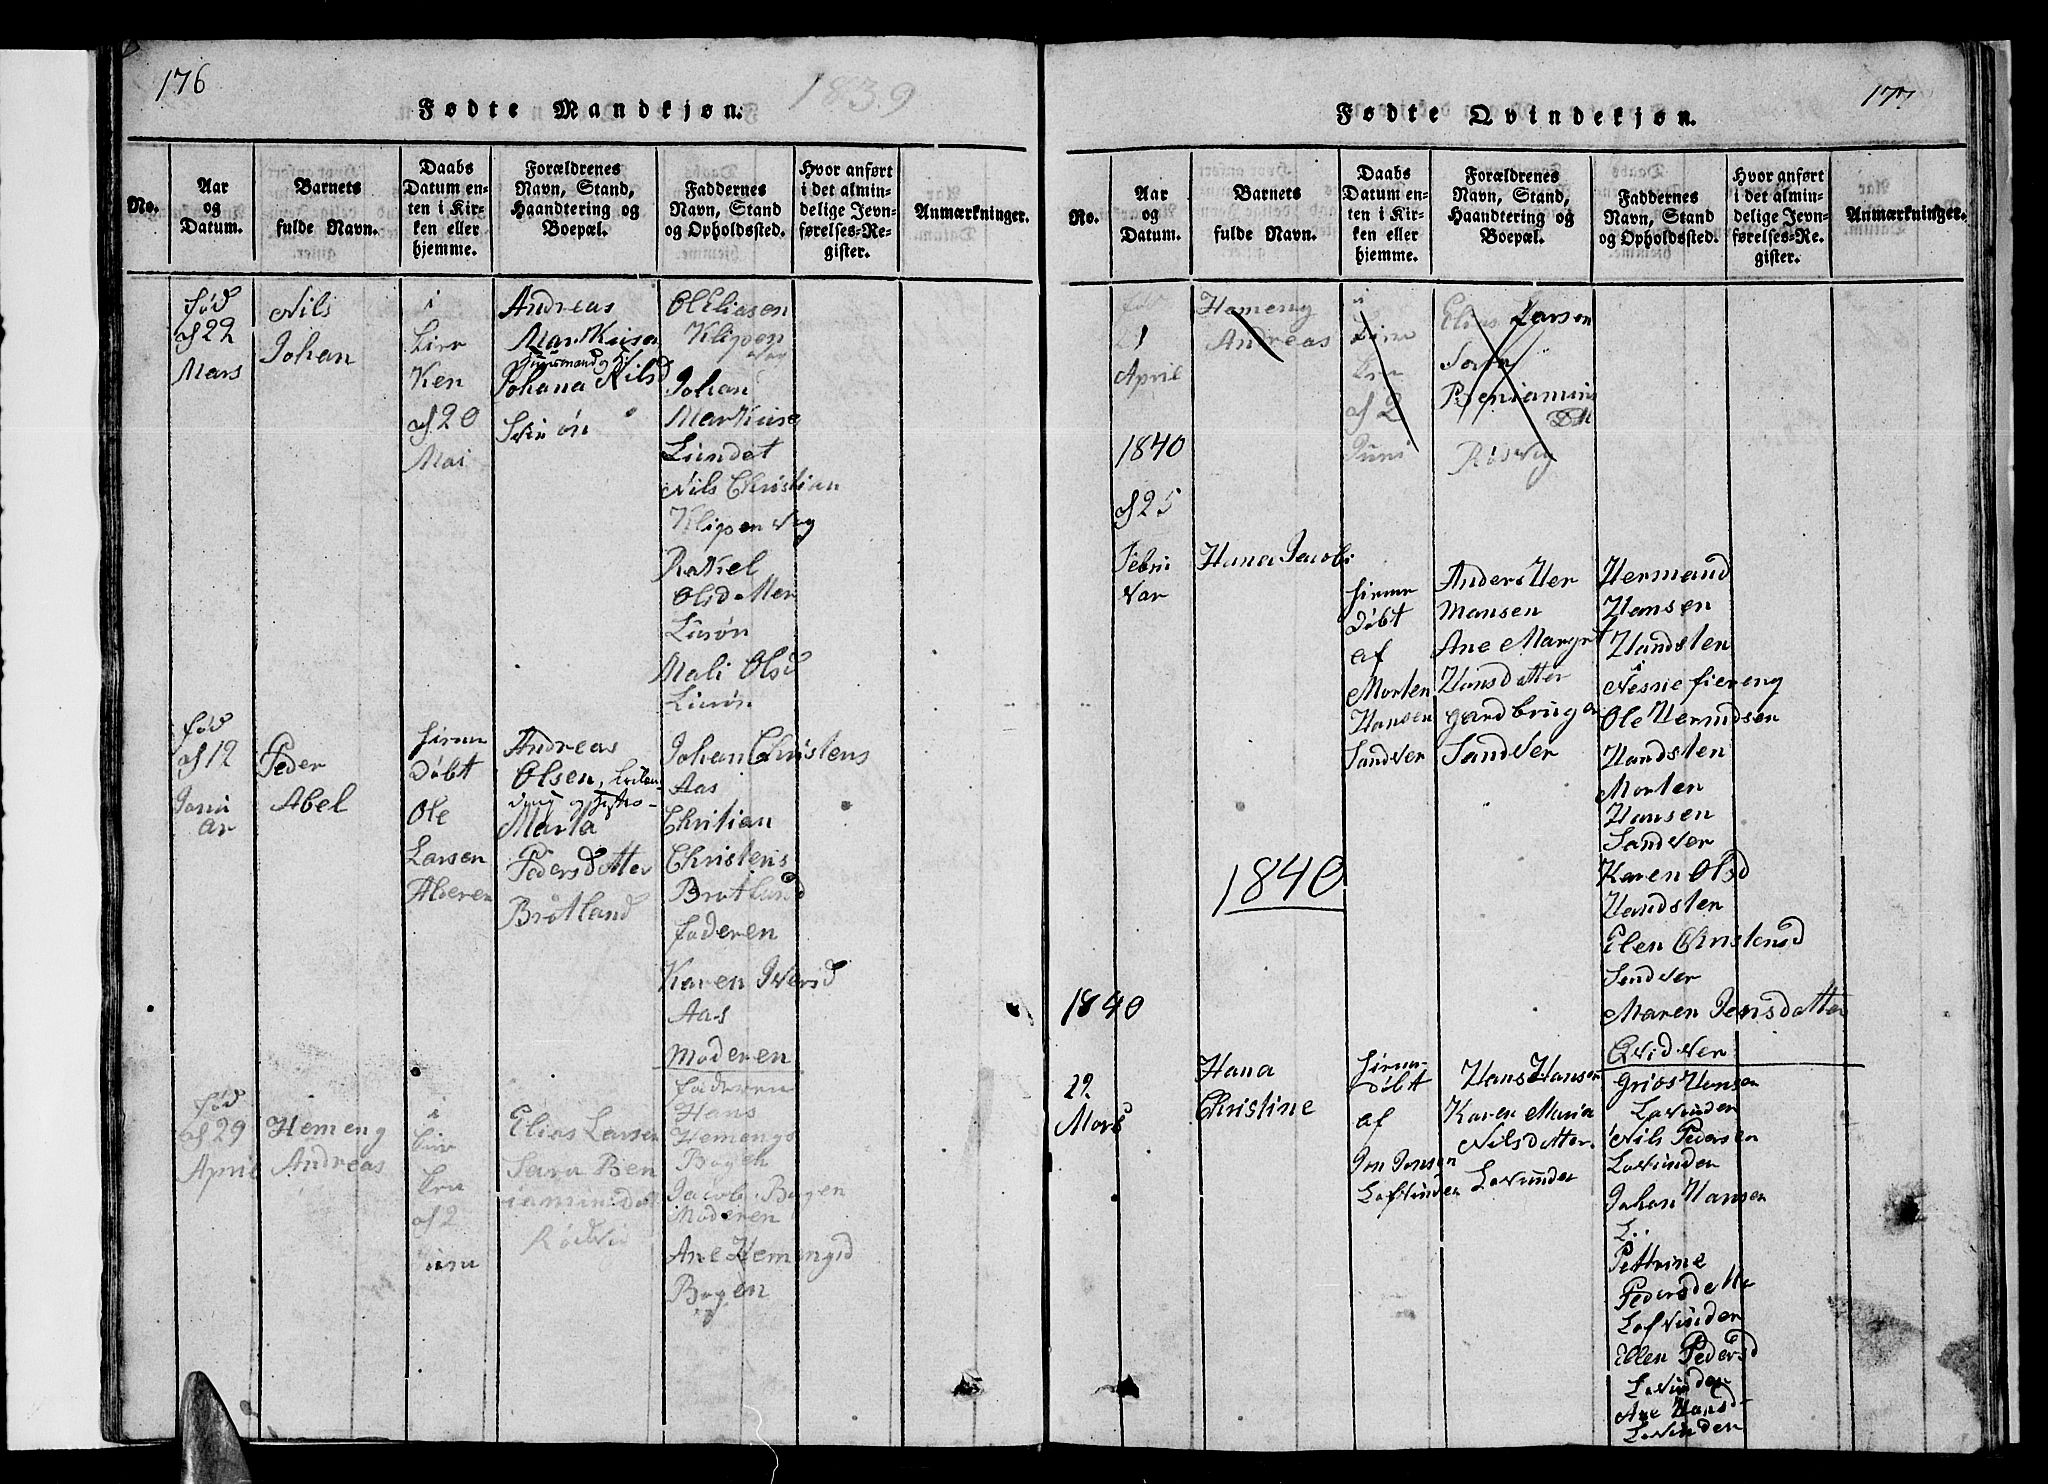 176
1839
Fødte Mandkjøn.
No.
Aar
og
Datum.
Barnets
fulde Navn.
Daabs
Datum en-
ten i Kir-
ken eller
hjemme.
Forældrenes
Navn, Stand,
Haandtering og
Boepæl.
Faddernes
Navn, Stand
og Opholdssted.
Hvor anført
i det almin-
delige Jevn-
førelses-Re-
gister.
Anmærkninger.
Fød
d 22
Mars
Nils
Johan
i
Kirr
Ken
d 20
Mai
Andreas
Markusen
Johana Nilsd
OlEliasen
Klipen
Johan
Markuse
Lundet
Nils Christian
Klipenvog
Rakel
Olsdatter
Lurön
Mali Olsd
Lurön
Fød
d 12
Janu
ar
Peder
Abel
hiem
Döbt
Ole
Larsen
Alveren
Andreas
Olsen
Marta
Pedersdatter
Bratland
Johan Christens
Aas
Chritian
Christens
Bratland
Faderen
Karen Iversd
Aas
Moderen
Fød
d 29
April
Hemeng
Andreas
i
Kirr
Ken
d 2
iuni
Elias Larsen
Sara Ben
iaminsdat
Rösvig
Faderen
Hans
Hemengs
Bogen
Jacob Bogen
Moderen
Ane Hemengsd
Bogen
177
Fødte Qvindekjøn.
No.
Aar
og
Datum.
Barnets
fulde Navn.
Daabs
Datum en-
ten i Kir-
ken eller
hjemme.
Forældrenes
Navn, Stand,
Haandtering og
Boepæl.
Faddernes
Navn, Stand
og Opholdssted.
Hvor anført
i det almin-
delige Jevn-
førelses-Re-
gister.
Anmærkninger.
April
Hemeng
Andreas
i
d 2
Juni
Elias Larsen
Sara
Beniamins
Rösvig
1840
d 25
Febru
var
Hana Jacobi
hieme
Döbt
af
Morten
Hansen
Sandver
Anders Her
mansen
Ane Margret
Hansdatter
gardbruger
Sandver
Hermand
Hansen
Handsten
Ole Hermdsen
Handsten
Morten
Hansen
Sandver
Karen Olsd
Handsten
Elen Christensd
Sandver
Maren Jensdatter
Qvidver
1840
1840
29
Mars
Hana
Christine
hieme
döbt
af
Jon Jonsen
Lofvunden
Hans Hansen
Karen Maria
Nilsdatter
Lovunden
Grios Hansen
Lovunden
Nils Pedersen
Lovunden
Johan Hansen
L..
Pettrine
Pedersdatte
Lofvunden
Ellen Pedersd
Lovunden
Ane Hansd
Lovunden